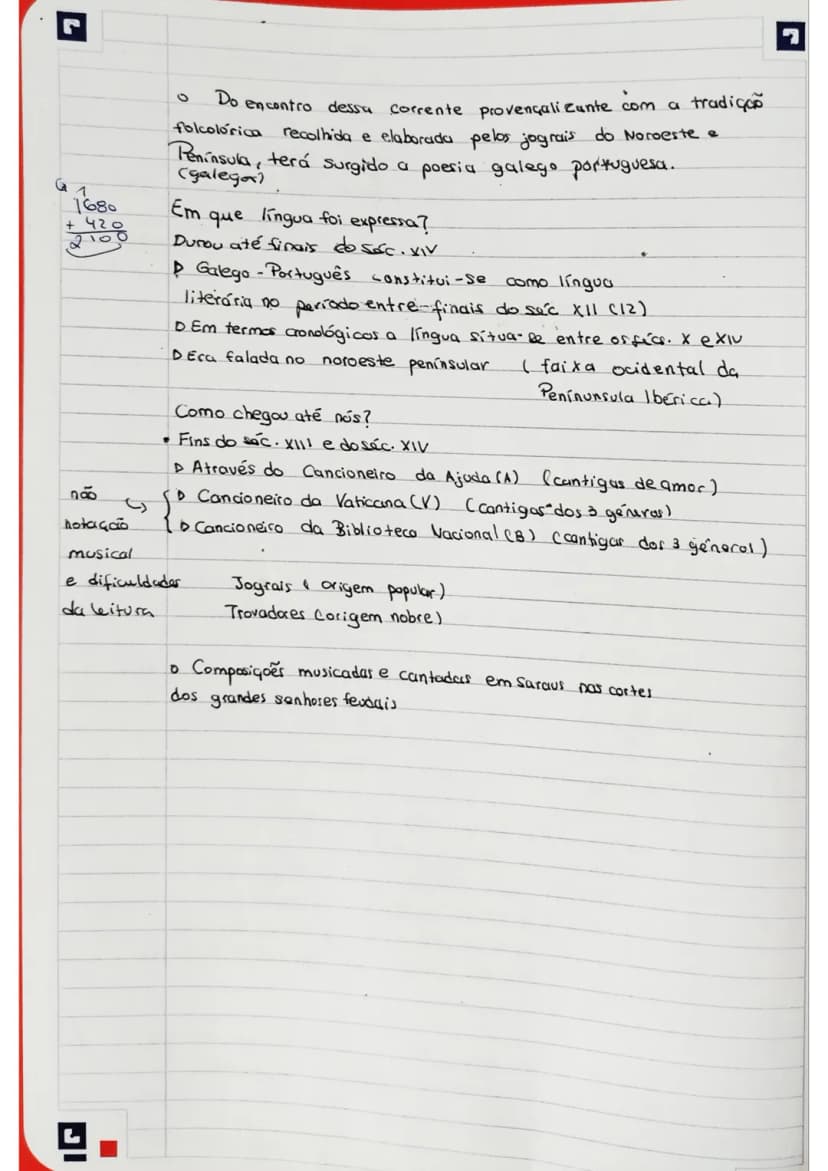 o Do encontro dessa corrente provençalizante com a tradição
folcolórica recolhida e elaborada pelos jograis do Noroeste e
Península, terá surgido a poesia galego portuguesa.
(galegor)
1
1680
+ 420
2100
Em que língua foi expressa?
Durou até finais do séc. XIV
▷ Galego-Português constitui-se como língua
literária no período entre-finais do séc XII (12)
▷ Em termos cronológicos a língua situa-se entre os sécs. X e XIV
▷ Era falada no noroeste penínsular ( faixa ocidental da
Penínunsula Ibérica)
Como chegou até nós?
• Fins do séc. XIII e do séc. XIV
▷ Através do Cancioneiro da Ajuda (A) (cantigas de amor)
▷ Cancioneiro da Vaticana (V) (cantigas dos 3 géneros)
▷ Cancioneiro da Biblioteca Nacional (B) (cantigas dos 3 géneros)
não
notação
musical
e dificuldades
da leitura
Jograis ( origem popular)
Trovadores (origem nobre)
▷ Composições musicadas e cantadas em Saraus nas cortes
dos grandes senhores feudais